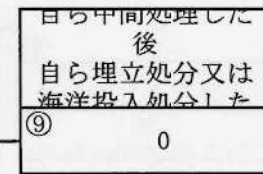 自ら中間処理した
後
自ら埋立処分又は
海洋投入処分した
⑨
0